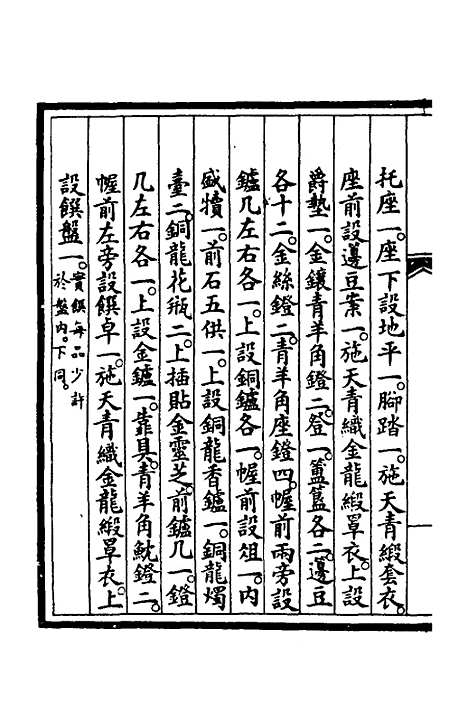 托座一。座下設地平一。腳踏一。施天青緞套衣。
座前設籩豆案一。施天青織金龍緞罩衣。上設
爵墊一。金鑲青羊角鐙二。登一。簠簋各二。籩豆
各十二。金絲鐙二。青羊角座鐙四。幄前兩旁設
鑪几左右各一。上設銅鑪各一。幄前設俎一。內
盛犢一。前石五供一。上設銅龍香鑪一。銅龍燭
臺二。銅龍花瓶二。上插貼金靈芝。前鑪几一。鐙
几左右各一。上設金鑪一。靠具。青羊角魫鐙二。
幄前左旁設饌桌一。施天青織金龍緞罩衣。上
設饌盤一。實饌每品少許於盤內。下同。